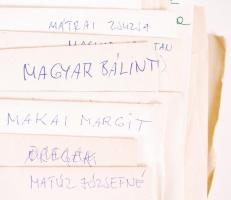 R
MÁTRAI ZSUZSA
TAN
MAGYAR BÁLINT)
MAKAI MARGIT
MATÚZ JÓZSEFNÉ